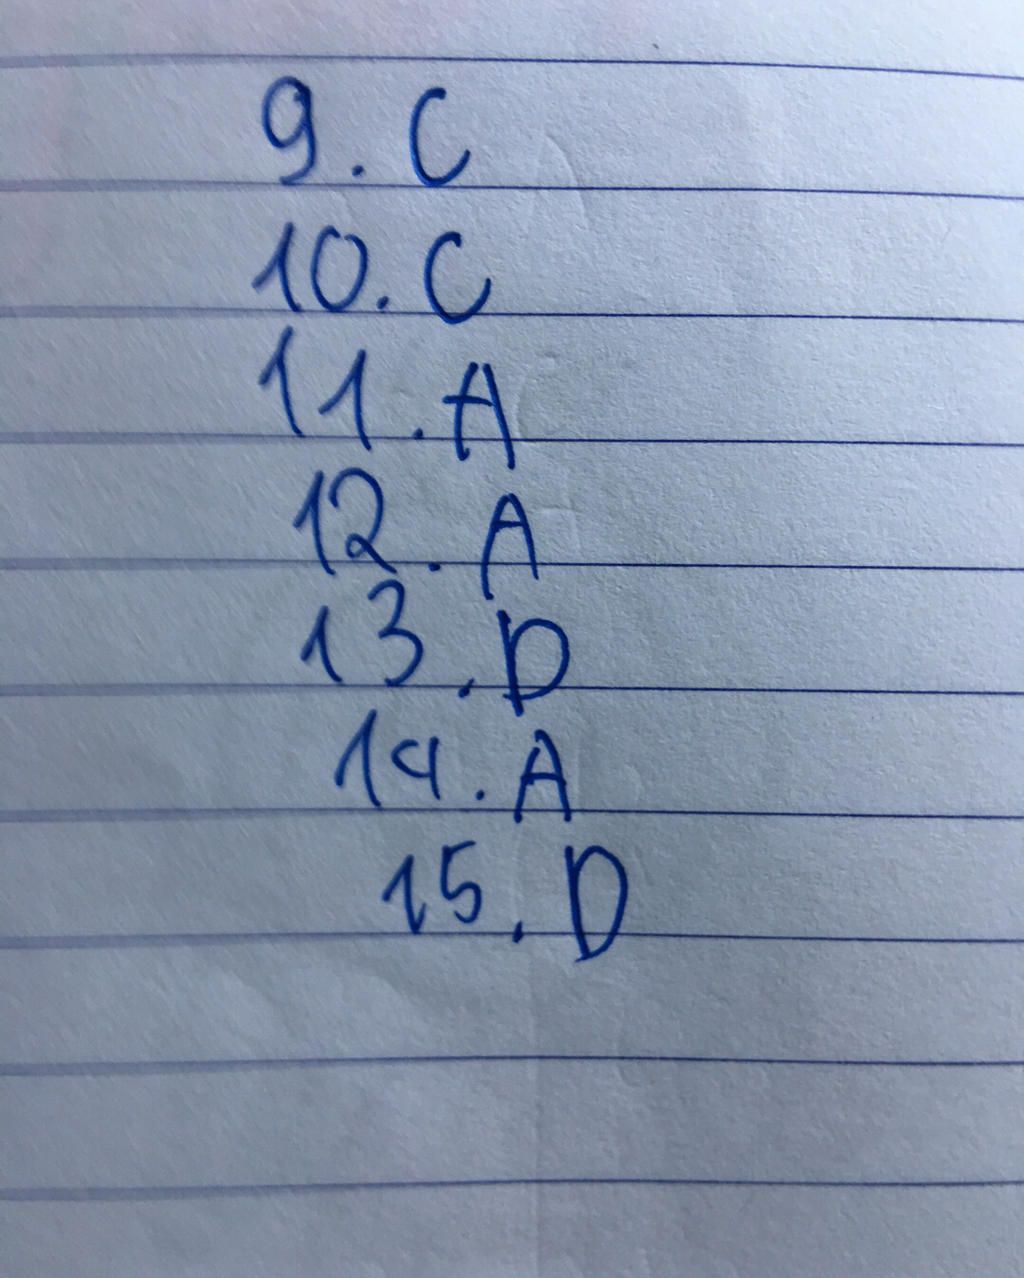 9. C
10. C
11. A
12. A
13. D
14. A
15. D